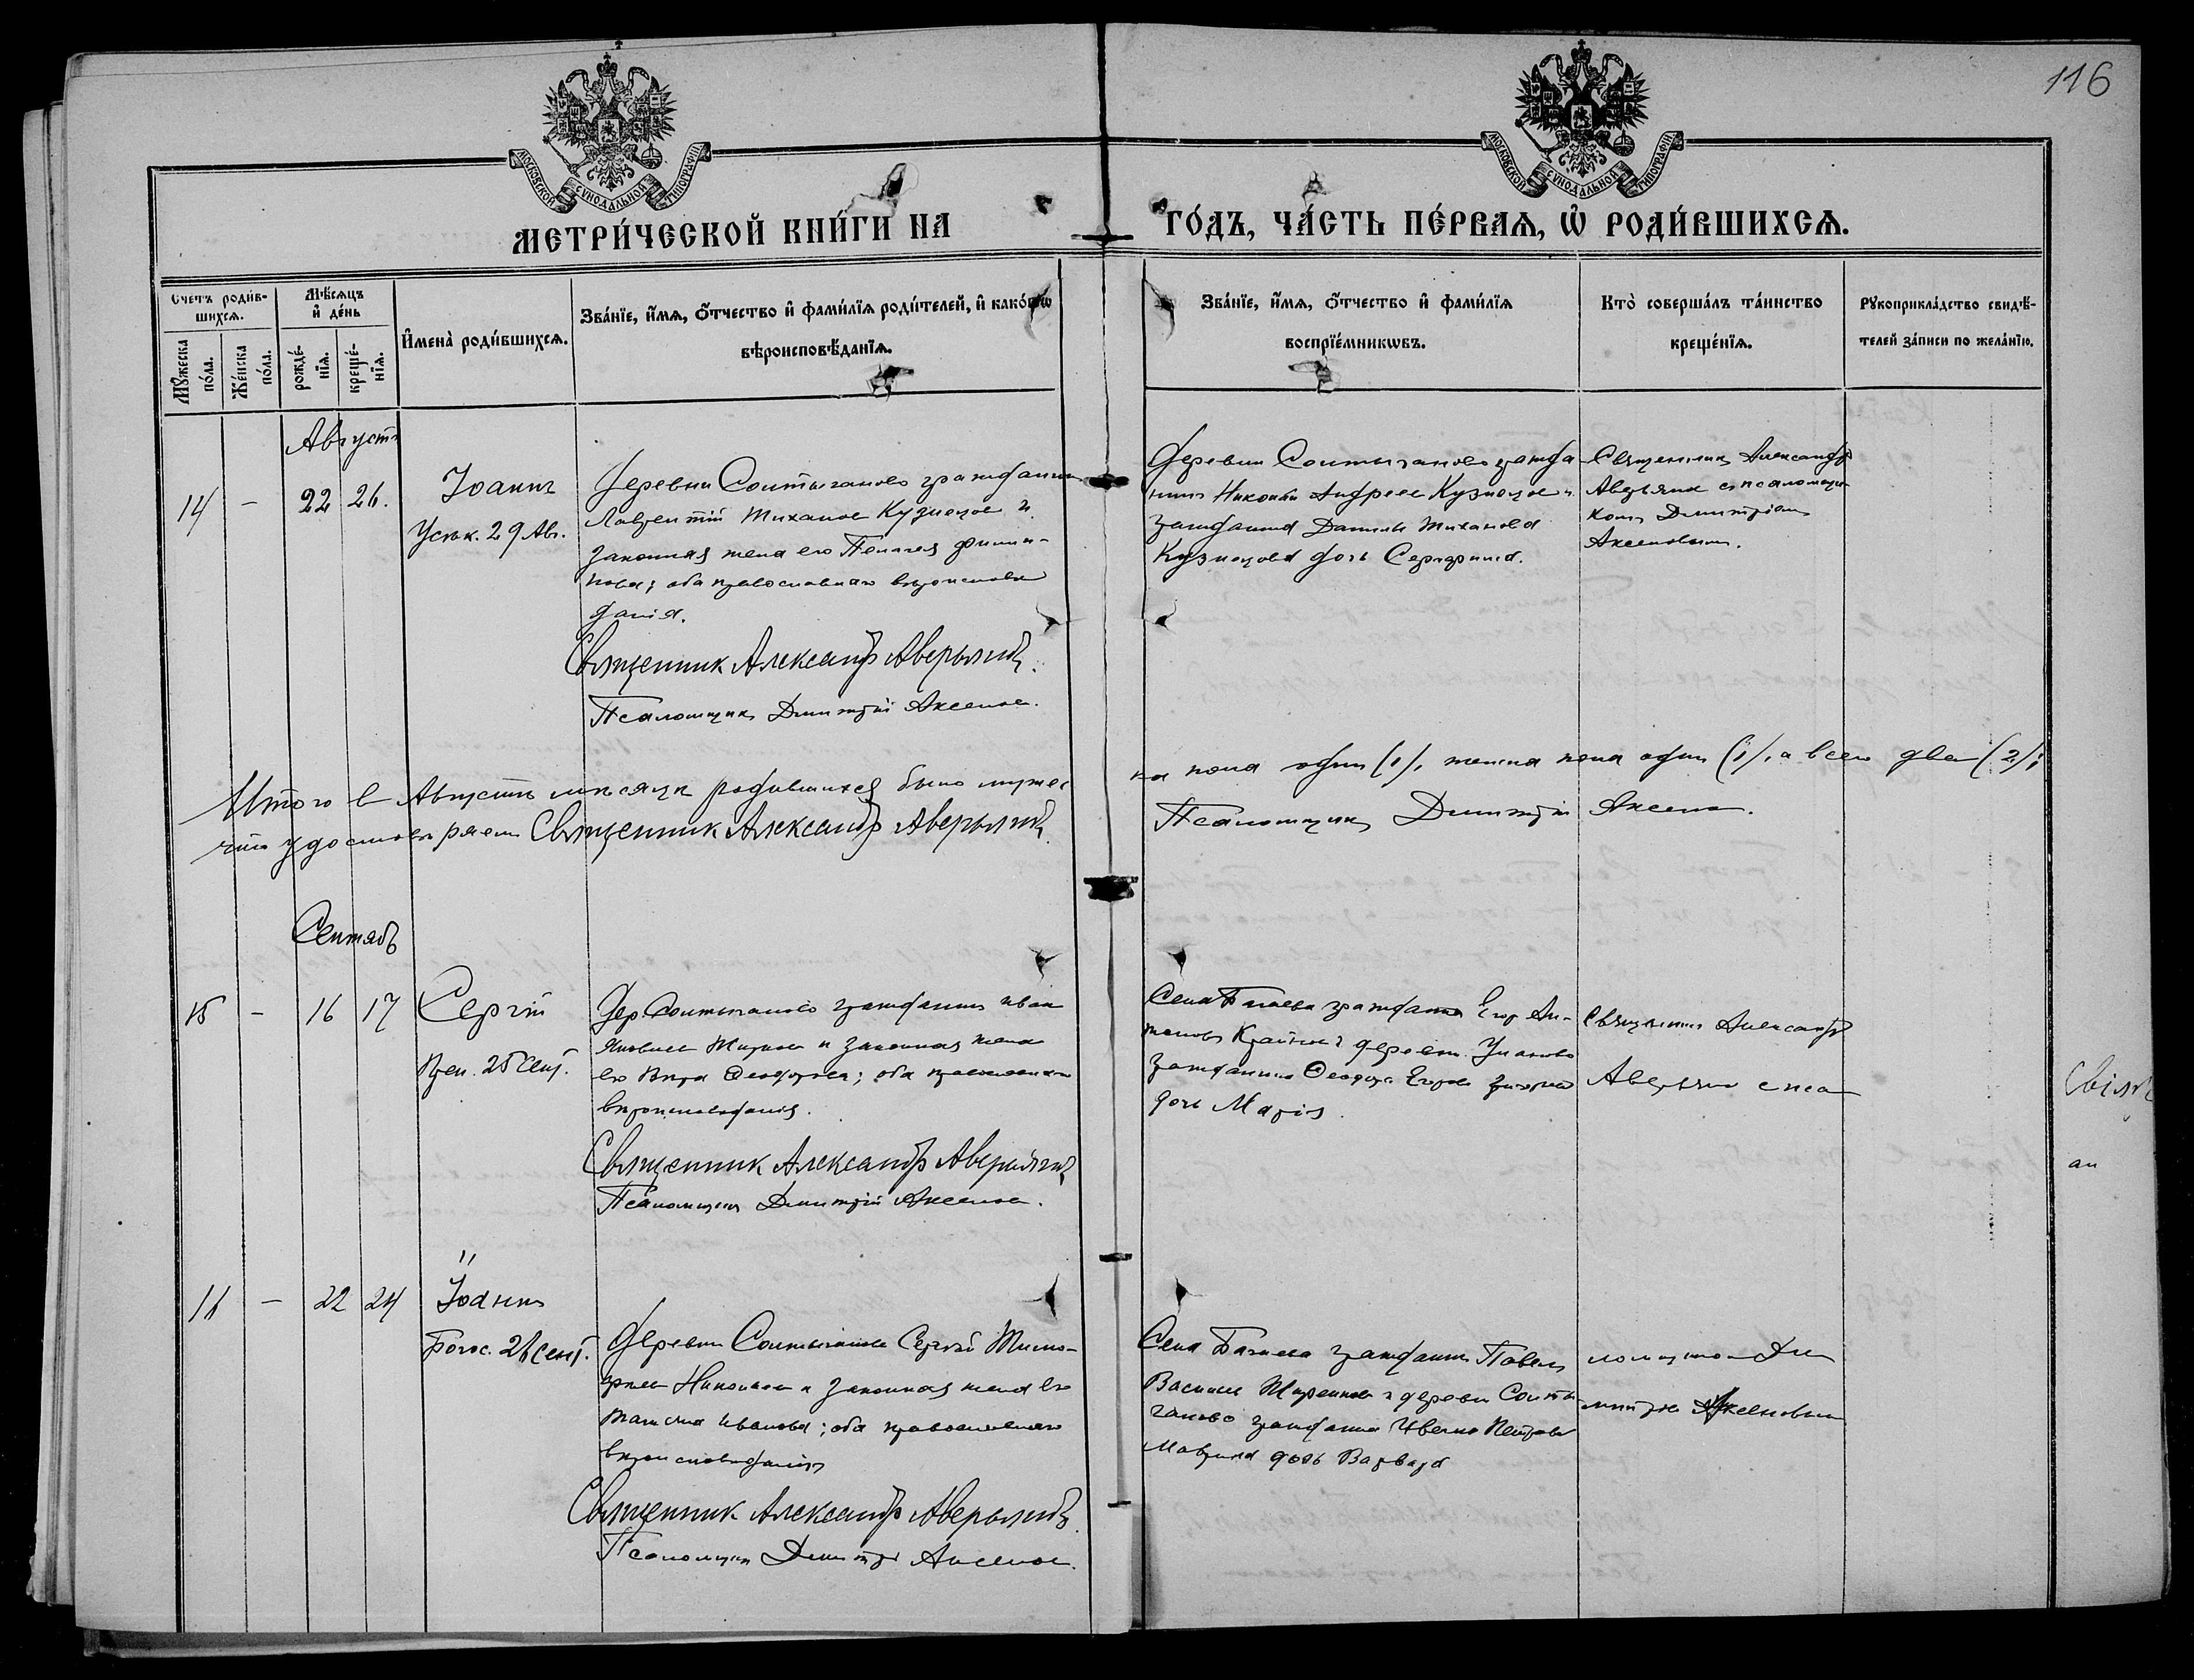 116
МОСКОВСКОЙ СѴНОДАЛЬНОЙ ТИПОГРАФІИ
МОСКОВСКОЙ СѴНОДАЛЬНОЙ ТИПОГРАФІИ
МЕТРИ́ЧЕСКОЙ КНИ́ГИ НА
ГО́ДЪ, ЧА́СТЬ ПЕ́РВАѦ, Ѡ҆ РОДИ́ВШИХСѦ.
Счетъ роди́в-
шихсѧ.
Мꙋ́жеска
по́ла.
Же́нска
по́ла.
Мѣ́сѧцъ
и҆ де́нь
рожде́-
нїѧ.
креще́-
нїѧ.
И҆мена̀ роди́вшихсѧ.
Зва́нїе, и҆́мѧ, ѻ҆́тчество и҆ фами́лїѧ роди́телей, и҆ како́гѡ
вѣроисповѣ́данїѧ.
Зва́нїе, и҆́мѧ, ѻ҆́тчество и҆ фами́лїѧ
воспрїе́мникѡвъ.
Кто̀ соверша́лъ та́инство
креще́нїѧ.
Рꙋкоприкла́дство свидѣ́-
телей за́писи по жела́нїю.
Августъ
14 - 22 26.
Іоаннъ
Усѣк. 29 Авг.
Деревни Солтыганово гражданин
Лаврентій Тиханов Кузнецов и
законная жена его Пелагея Филип-
пова; оба православнаго вѣроисповѣ
данія.
Священник Александр Аверьянов.
Псаломщикъ Димитрій Аксенов.
Деревни Солтыганово гражда
нинъ Николай Андреев Кузнецов и
гражданина Даниила Тиханова
Кузнецова дочь Серафима.
Священникъ Александръ
Аверьянов с псаломщи-
комъ Димитріемъ
Аксеновым.
Итого в Августѣ мѣсяцѣ родившихся было мужес
ка пола один (1), женска пола один (1), а всего два (2);
что удостовѣряем Священник Александр Аверьянов.
Псаломщикъ Димитрій Аксенов.
Сентябь
15 - 16 17
Сергій
Преп. 25 Сент.
Дер. Солтыганово гражданинъ Иван
Яковлев и законная жена
его Вѣра Феодорова; оба православнаго
вѣроисповѣданія.
Священник Александр Аверьянов
Псаломщикъ Димитрій Аксенов.
Села гражданин Егор Ан-
тонов и деревни
гражданина Феодора Егорова
дочь Марія
Священникъ Александръ
Аверьянов с пса
16 - 22 24
"
Іоаннъ
Богос. 26 сент.
Деревни Солтыганово Сергѣй Тимо-
феев Николаев и законная жена его
Татіана Иванова; оба православнаго
вѣроисповѣданія
Священник Александр Аверьянов
Псаломщик Димитрій Аксенов.
Села гражданинъ Павелъ
Васильев и деревни Солты-
ганово гражданина Ивана Петрова
Маврина дочь Варвара
ломщиком Ди
митрием Аксеновым